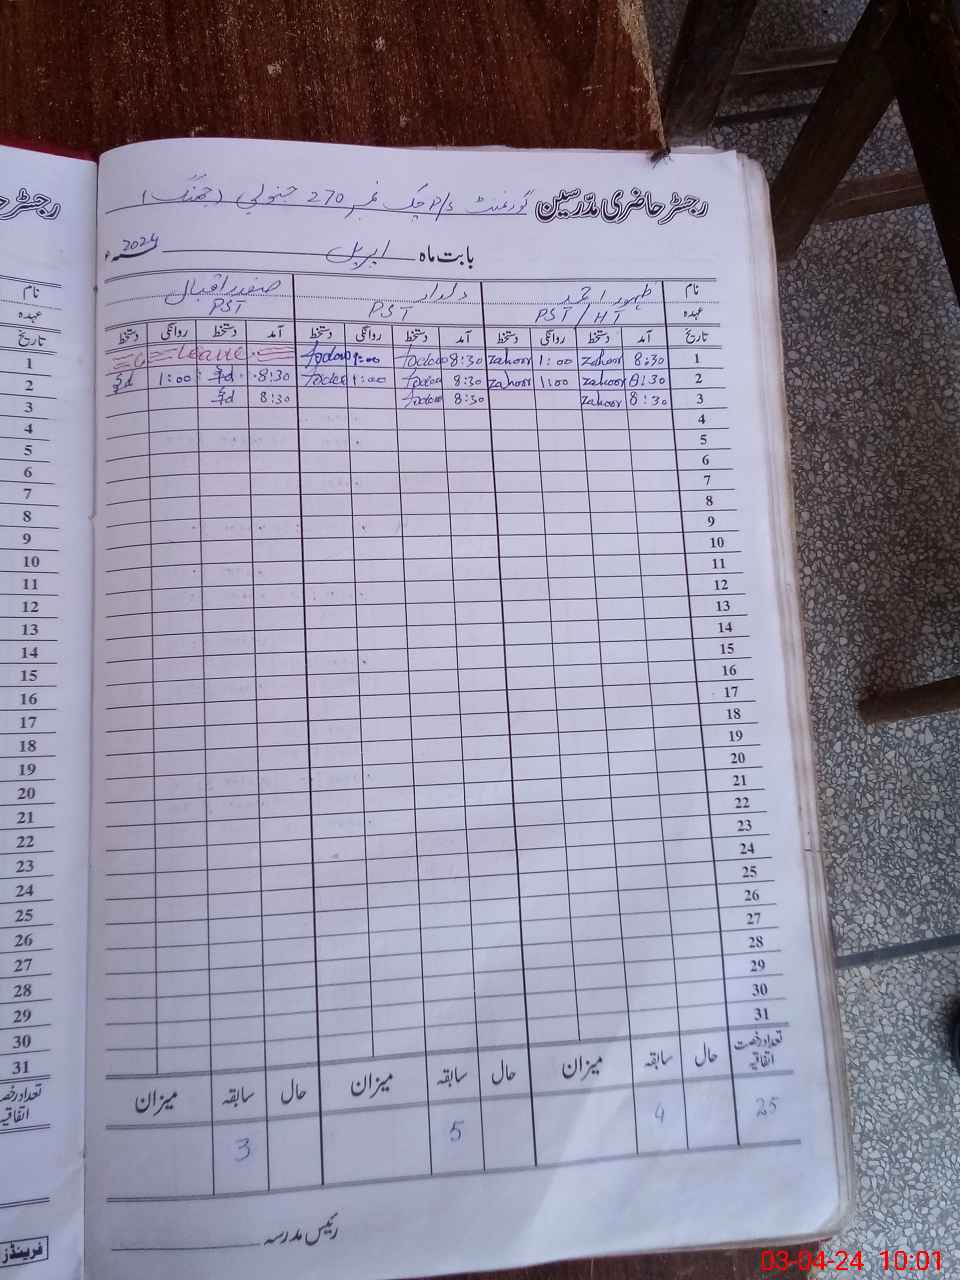 رجسٹر حاضری مدرسین گورنمنٹ P/S چک نمبر 270 جنوبی (جھنگ)
بابت ماہ اپریل سنہ 2024ء
نام ظہور احمد دلدار صفدر اقبال
عہدہ PST/HT PST PST
تاریخ آمد دستخط روانگی دستخط آمد دستخط روانگی دستخط آمد دستخط روانگی دستخط
1 8:30 zahoor 1:00 zahoor 8:30 1:00 Leave
2 8:30 zahoor 1:00 zahoor 8:30 1:00 8:30 1:00
3 8:30 zahoor 8:30 8:30
4
5
6
7
8
9
10
11
12
13
14
15
16
17
18
19
20
21
22
23
24
25
26
27
28
29
30
31
تعداد رخصت اتفاقیہ حال سابقہ میزان حال سابقہ میزان حال سابقہ میزان
25 4 5 3
رئیس مدرسہ
رجسٹر حا
نام
عہدہ
تاریخ
1
2
3
4
5
6
7
8
9
10
11
12
13
14
15
16
17
18
19
20
21
22
23
24
25
26
27
28
29
30
31
تعداد رخصت
اتفاقیہ
فرینڈز
03-04-24 10:01